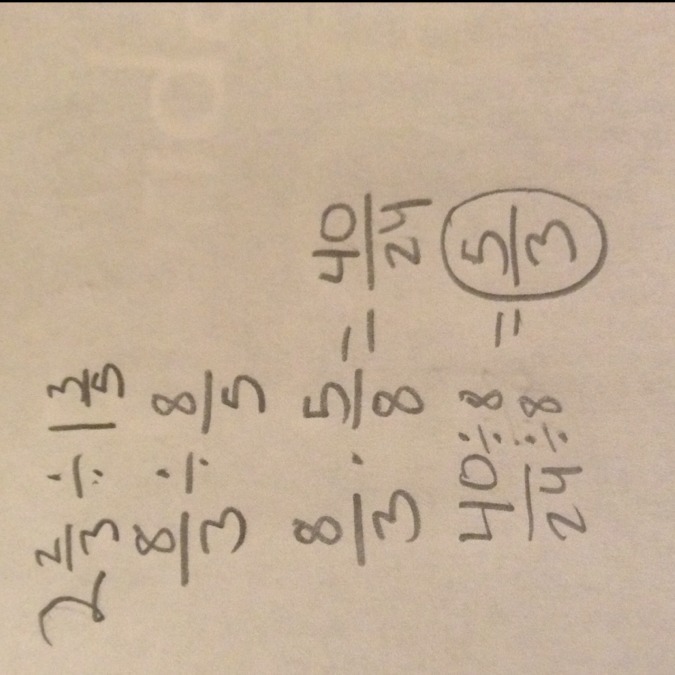 2 2/3 ÷ 1 3/5
8/3 ÷ 8/5
8/3 · 5/8 = 40/24
40÷8/24÷8 = 5/3